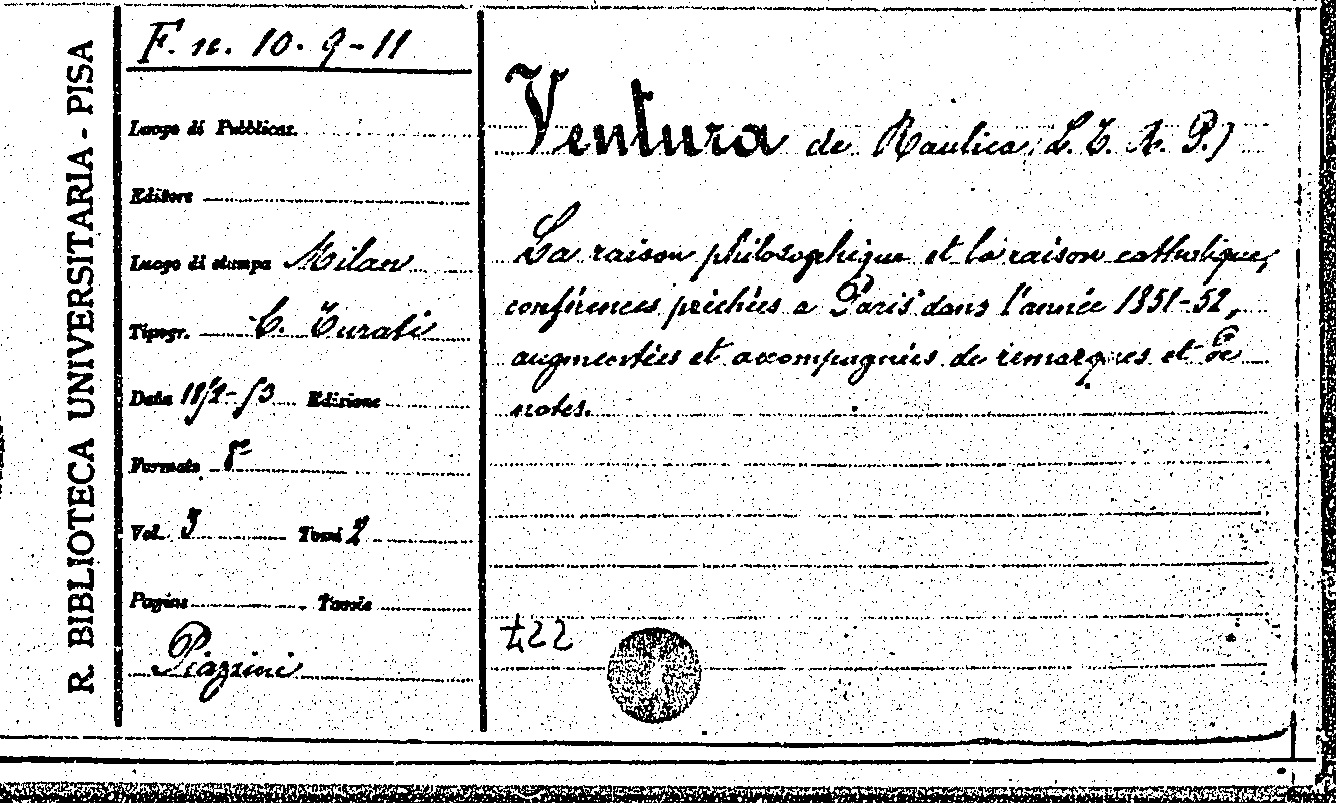 R. BIBLIOTECA UNIVERSITARIA - PISA
F. n. 10. 9-11
Luogo di Pubblicaz.
Editore
Luogo di stampa Milan
Tipogr. C. Turati
Data 1852-53 Edizione
Formato 8°
Vol. 3 Tomi 2
Pagine Tavole
Piazzini
Ventura de Raulica
La raison philosophique et la raison catholique,
conférences prêchées a Paris dans l'année 1851-52,
augmentées et accompagnées de remarques et de
notes.
422